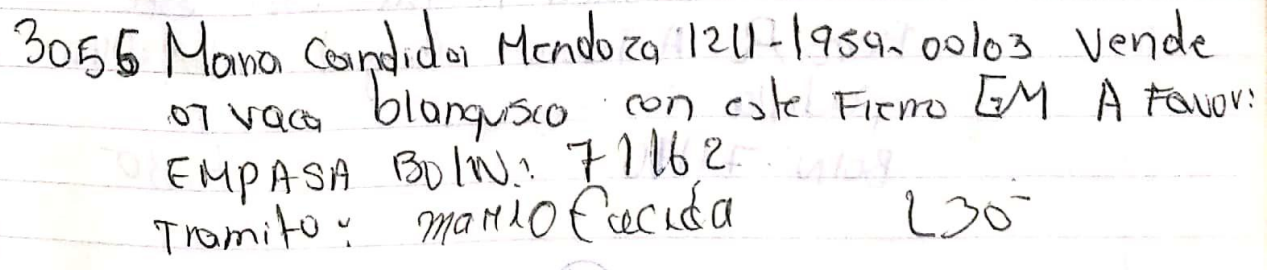 3056 Maria Candida Mendoza 1211-1959-00103 Vende
01 vaca blanqusco con este Fierro EM A Favor:
EMPASA BOIN: 71162
Tramito: MARIO
L30-